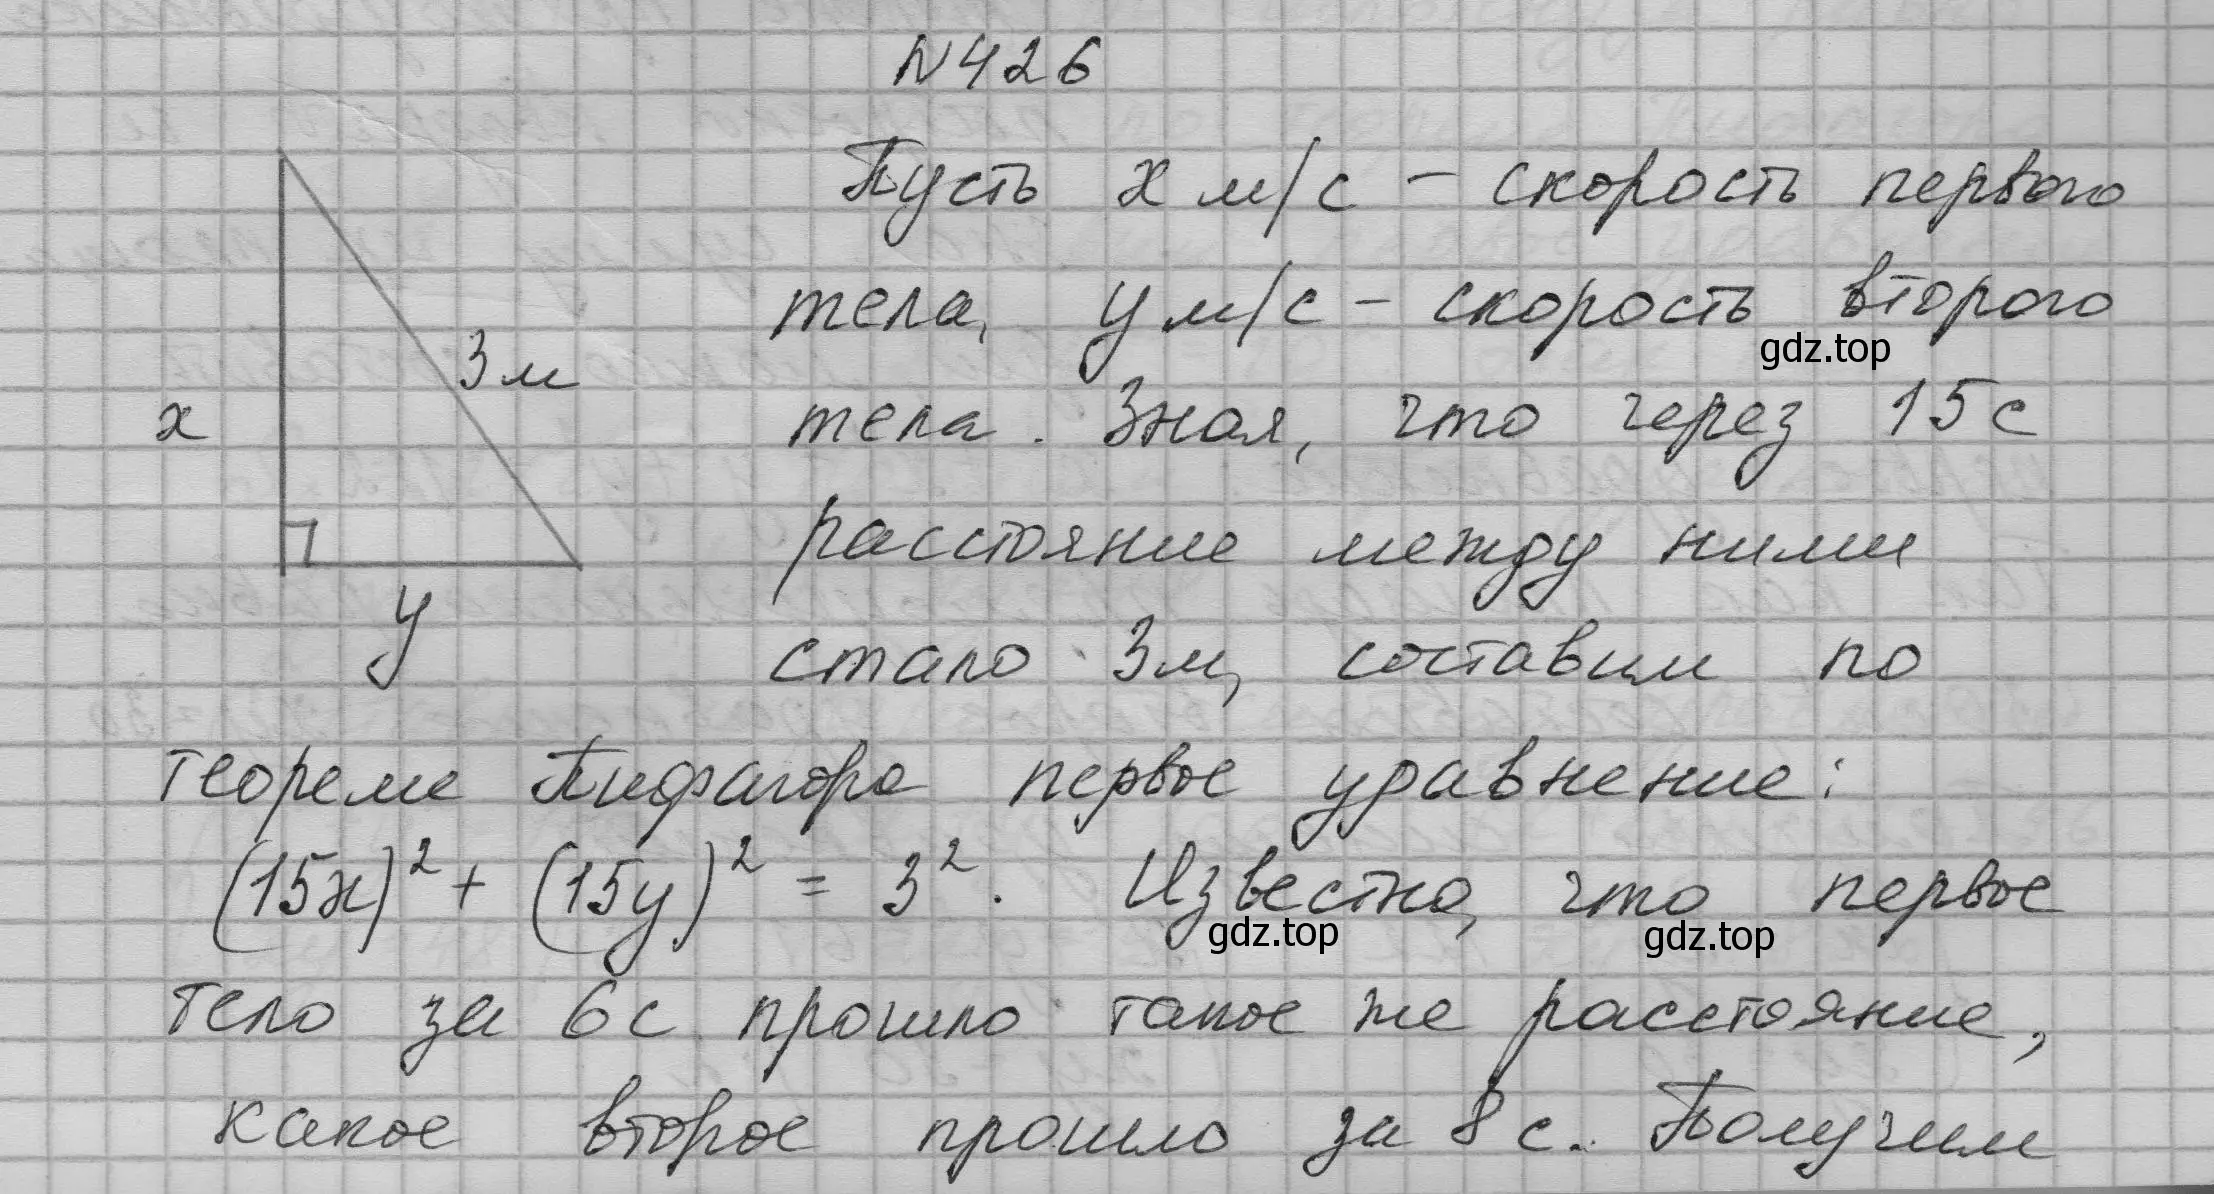 N426
Пусть x м/с - скорость первого
тела, y м/с - скорость второго
gdz.top
3м
x
тела. Зная, что через 15 с
расстояние между ними
y
стало 3м, составим по
теореме Пифагора первое уравнение:
(15x)² + (15y)² = 3². Известно, что первое
gdz.top gdz.top
тело за 6с прошло такое же расстояние,
какое второе прошло за 8 с. Получим